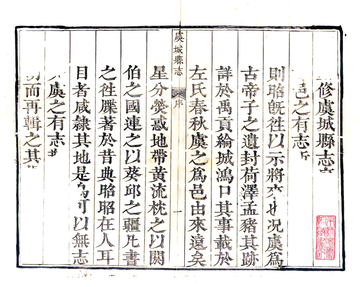 修虞城縣志
邑之有志
則昭旣往以示將來況虞爲
古帝子之遺封荷澤孟豬其跡
詳於禹貢綸城鴻口其事載於
左氏春秋虞之爲邑由來遠矣
虞城縣志
序
一
星分熒惑地帶黃流枕之以閼
伯之國連之以葵邱之疆凡書
之往牒著於昔典昭昭在人耳
目者咸隸其地是烏可以無志
虞之有志
而再輯之其